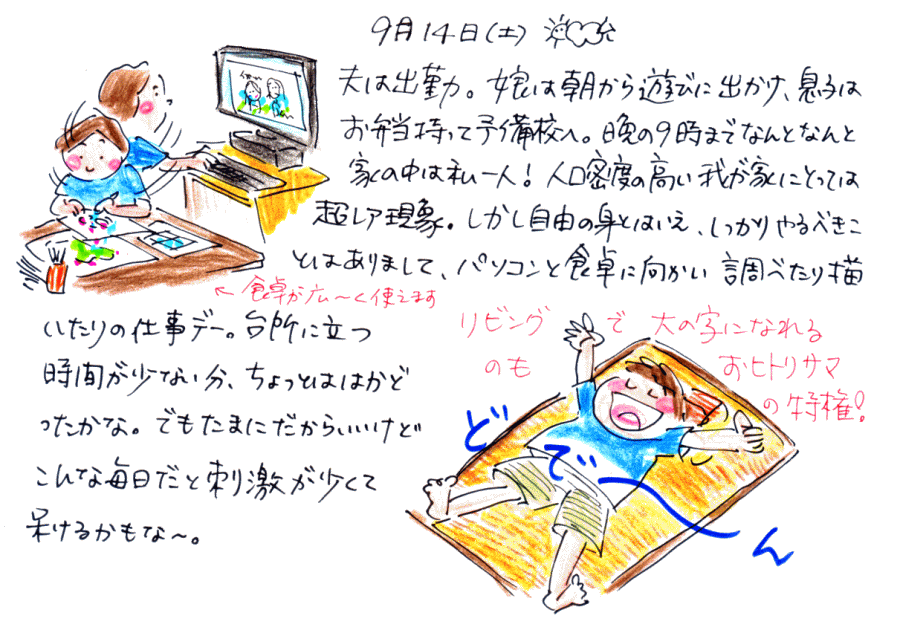 9月14日(土)
夫は出勤。娘は朝から遊びに出かけ、息子は
お弁当持って予備校へ。晩の9時までなんとなんと
家の中は私一人!人口密度の高い我が家にとっては
超レア現象。しかし自由の身とはいえ、しっかりやるべきこ
とはありまして、パソコンと食卓に向かい調べたり描
← 食卓が広〜く使えます
いたりの仕事デー。台所に立つ
時間が少ない分、ちょっとははかど
ったかな。でもたまにだからいいけど
こんな毎日だと刺激が少くて
呆けるかもな〜。
リビングで大の字になれる
のもおヒトリサマ
の特権!
どでーん